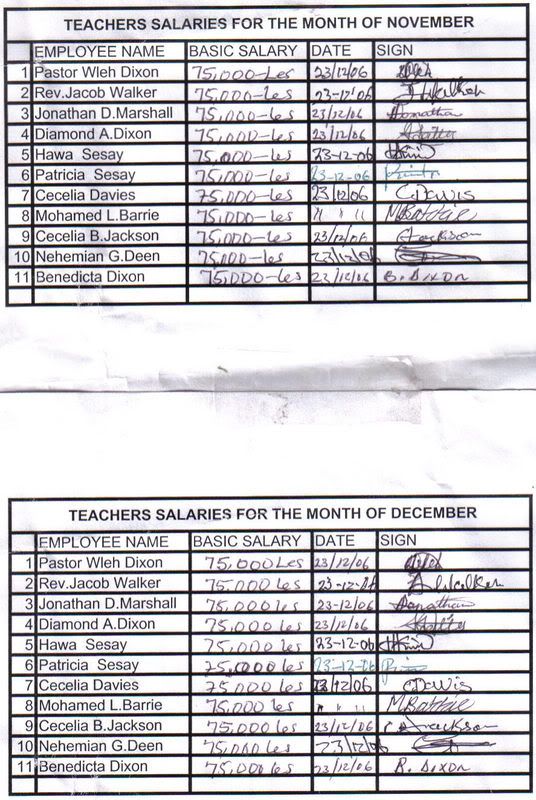 TEACHERS SALARIES FOR THE MONTH OF NOVEMBER
EMPLOYEE NAME BASIC SALARY DATE SIGN
1 Pastor Wleh Dixon 75,000-Les 23/12/06
2 Rev.Jacob Walker 75,000-Les 23-12-06
3 Jonathan D.Marshall 75,000-Les 23/12/06 Jonathan
4 Diamond A.Dixon 75,000-Les 23/12/06
5 Hawa Sesay 75,000-Les 23-12-06
6 Patricia Sesay 75,000-Les 23-12-06
7 Cecelia Davies 75,000-Les 23/12/06 CDavis
8 Mohamed L.Barrie 75,000-Les " " " M.Barrie
9 Cecelia B.Jackson 75,000-Les 23/12/06 Jackson
10 Nehemian G.Deen 75,000-Les 23/12/06
11 Benedicta Dixon 75,000-Les 23/12/06 B. DIXON
TEACHERS SALARIES FOR THE MONTH OF DECEMBER
EMPLOYEE NAME BASIC SALARY DATE SIGN
1 Pastor Wleh Dixon 75,000Les 23/12/06
2 Rev.Jacob Walker 75,000 Les 23-12-06
3 Jonathan D.Marshall 75,000Les 23-12/06 Jonathan
4 Diamond A.Dixon 75,000 Les 23/12/06
5 Hawa Sesay 75,000 Les 23-12-06
6 Patricia Sesay 75,000 Les 23-12-06
7 Cecelia Davies 75,000 Les 23/12/06 CDavis
8 Mohamed L.Barrie 75,000 Les " " " M.Barrie
9 Cecelia B.Jackson 75,000Les 23/12/06 C Jackson
10 Nehemian G.Deen 75,000 Les 23/12/06
11 Benedicta Dixon 75,000 Les 23/12/06 B. DIXON